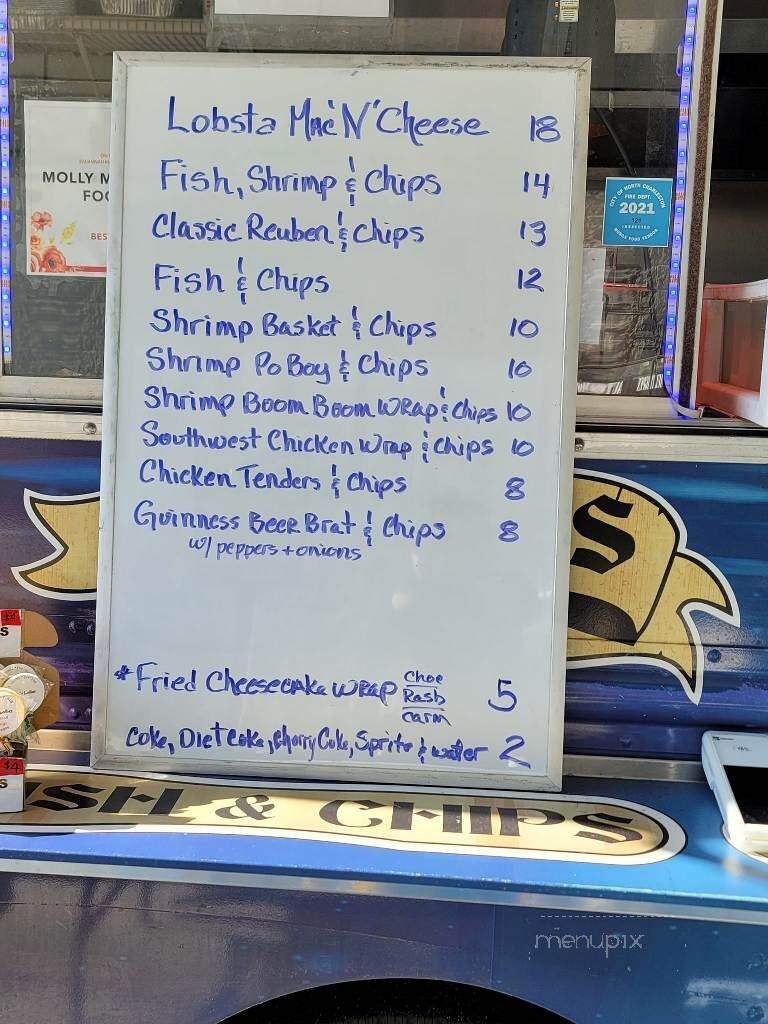 Lobsta Mac 'N' Cheese 18
Fish, Shrimp & Chips 14
Classic Reuben & Chips 13
Fish & Chips 12
Shrimp Basket & Chips 10
Shrimp Po Boy & Chips 10
Shrimp Boom Boom Wrap & Chips 10
Southwest Chicken Wrap & Chips 10
Chicken Tenders & Chips 8
Guinness Beer Brat & Chips 8
w/ peppers + onions
*Fried Cheesecake Wrap Choc Rasb Carm 5
Coke, Diet Coke, Cherry Coke, Sprite & water 2
MOLLY M
FOO
BES
CITY OF NORTH CHARLESTON
FIRE DEPT.
2021
INSPECTED
MOBILE FOOD VENDOR
S
$4
S
$4
S
ISH & CHIPS
menupix